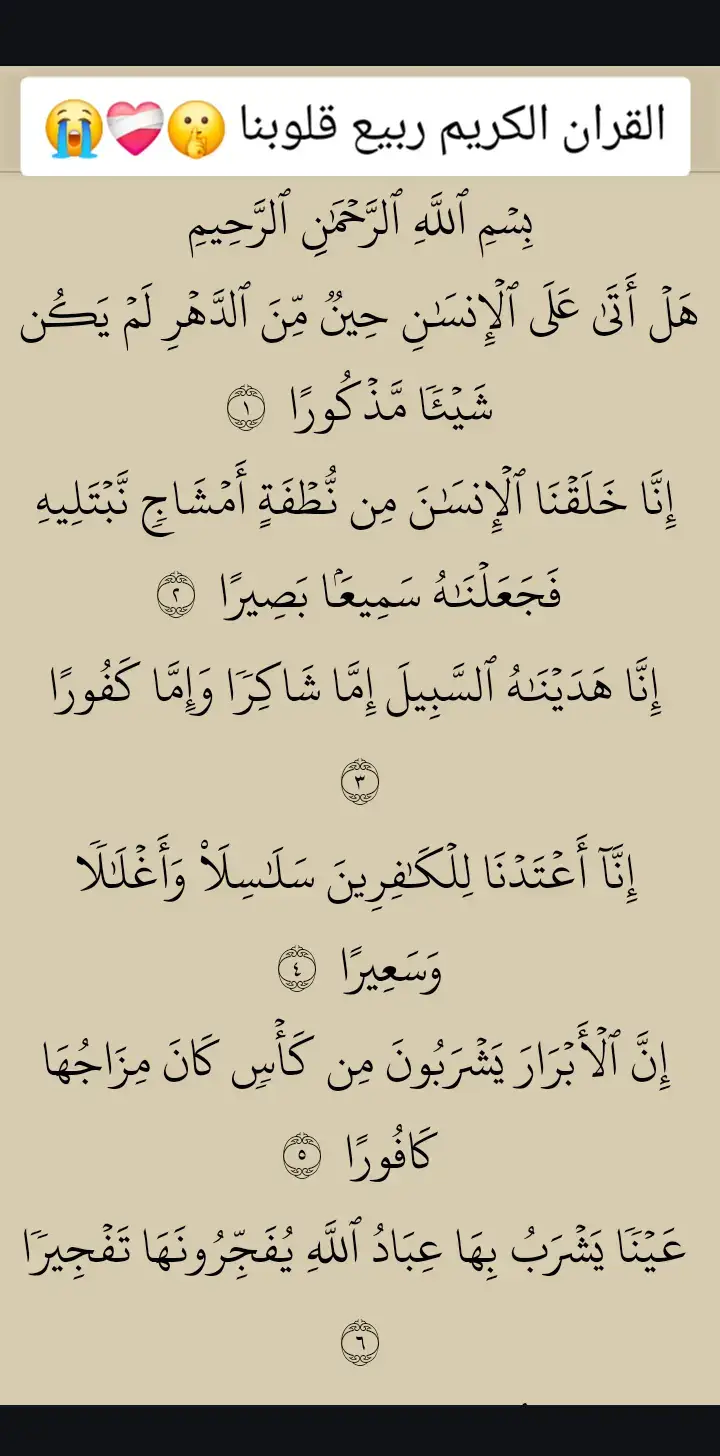 القران الكريم ربيع قلوبنا 🤫❤️‍🩹😭
بِسۡمِ ٱللَّهِ ٱلرَّحۡمَٰنِ ٱلرَّحِيمِ
هَلۡ أَتَىٰ عَلَى ٱلۡإِنسَٰنِ حِينٞ مِّنَ ٱلدَّهۡرِ لَمۡ يَكُن
شَيۡـٔٗا مَّذۡكُورًا ١
إِنَّا خَلَقۡنَا ٱلۡإِنسَٰنَ مِن نُّطۡفَةٍ أَمۡشَاجٖ نَّبۡتَلِيهِ
فَجَعَلۡنَٰهُ سَمِيعَۢا بَصِيرًا ٢
إِنَّا هَدَيۡنَٰهُ ٱلسَّبِيلَ إِمَّا شَاكِرٗا وَإِمَّا كَفُورًا
٣
إِنَّآ أَعۡتَدۡنَا لِلۡكَٰفِرِينَ سَلَٰسِلَاْ وَأَغۡلَٰلٗا
وَسَعِيرًا ٤
إِنَّ ٱلۡأَبۡرَارَ يَشۡرَبُونَ مِن كَأۡسٖ كَانَ مِزَاجُهَا
كَافُورًا ٥
عَيۡنٗا يَشۡرَبُ بِهَا عِبَادُ ٱللَّهِ يُفَجِّرُونَهَا تَفۡجِيرٗا
٦